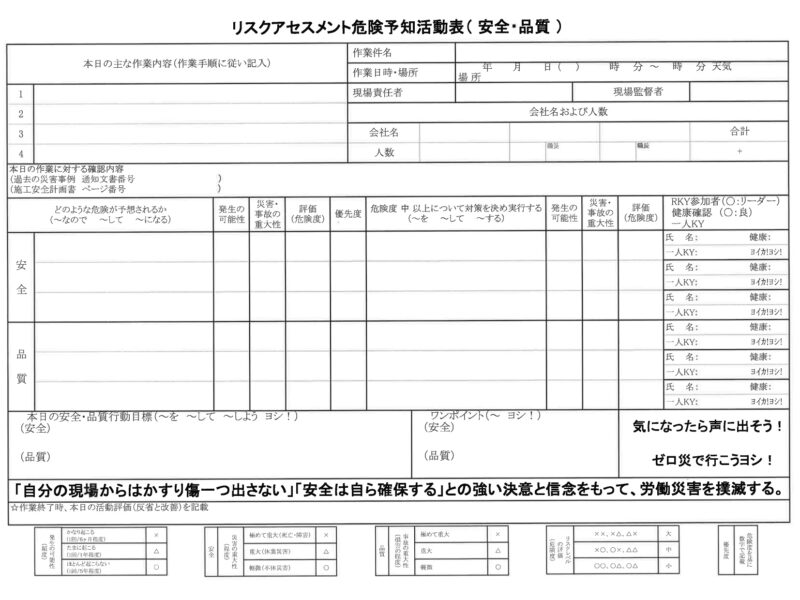 リスクアセスメント危険予知活動表（ 安全・品質 ）
本日の主な作業内容（作業手順に従い記入）
作業件名
作業日時・場所
年　月　日（　）　時　分 ～　時　分 天気
場 所
現場責任者
現場監督者
1
2
3
4
会社名および人数
会社名
合計
人数
職長
職長
+
本日の作業に対する確認内容
（過去の災害事例　通知文書番号　　　）
（施工安全計画書　ページ番号　　　）
どのような危険が予想されるか
（～なので　～して　～になる）
発生の
可能性
災害・
事故の
重大性
評価
（危険度）
優先度
危険度 中 以上について対策を決め実行する
（～を　～して　～する）
発生の
可能性
災害・
事故の
重大性
評価
（危険度）
RKY参加者（〇:リーダー）
健康確認　（〇：良）
一人KY
安全
品質
氏　名:　健康:
一人KY:　ヨイカ!ヨシ!
氏　名:　健康:
一人KY:　ヨイカ!ヨシ!
氏　名:　健康:
一人KY:　ヨイカ!ヨシ!
氏　名:　健康:
一人KY:　ヨイカ!ヨシ!
氏　名:　健康:
一人KY:　ヨイカ!ヨシ!
氏　名:　健康:
一人KY:　ヨイカ!ヨシ!
本日の安全・品質行動目標（～を　～して　～しよう　ヨシ！）
（安全）
（品質）
ワンポイント（～　ヨシ！）
（安全）
（品質）
気になったら声に出そう！
ゼロ災で行こうヨシ！
「自分の現場からはかすり傷一つ出さない」「安全は自ら確保する」との強い決意と信念をもって、労働災害を撲滅する。
☆作業終了時、本日の活動評価（反省と改善）を記載
発生の可能性
（頻度）
かなり起こる
（1回/6ヶ月程度）
×
たまに起こる
（1回/1年程度）
△
ほとんど起こらない
（1回/5年程度）
○
安全
災害の重大性
（程度）
極めて重大（死亡・障害）
×
重大（休業災害）
△
軽微（不休災害）
○
品質
事故の重大性
（損害の程度）
極めて重大
×
重大
△
軽微
○
リスクレベルの評価
（危険度）
××、×△、△×
大
×○、○×、△△
中
○○、○△、△○
小
優先度
危険度を基に数字で記載